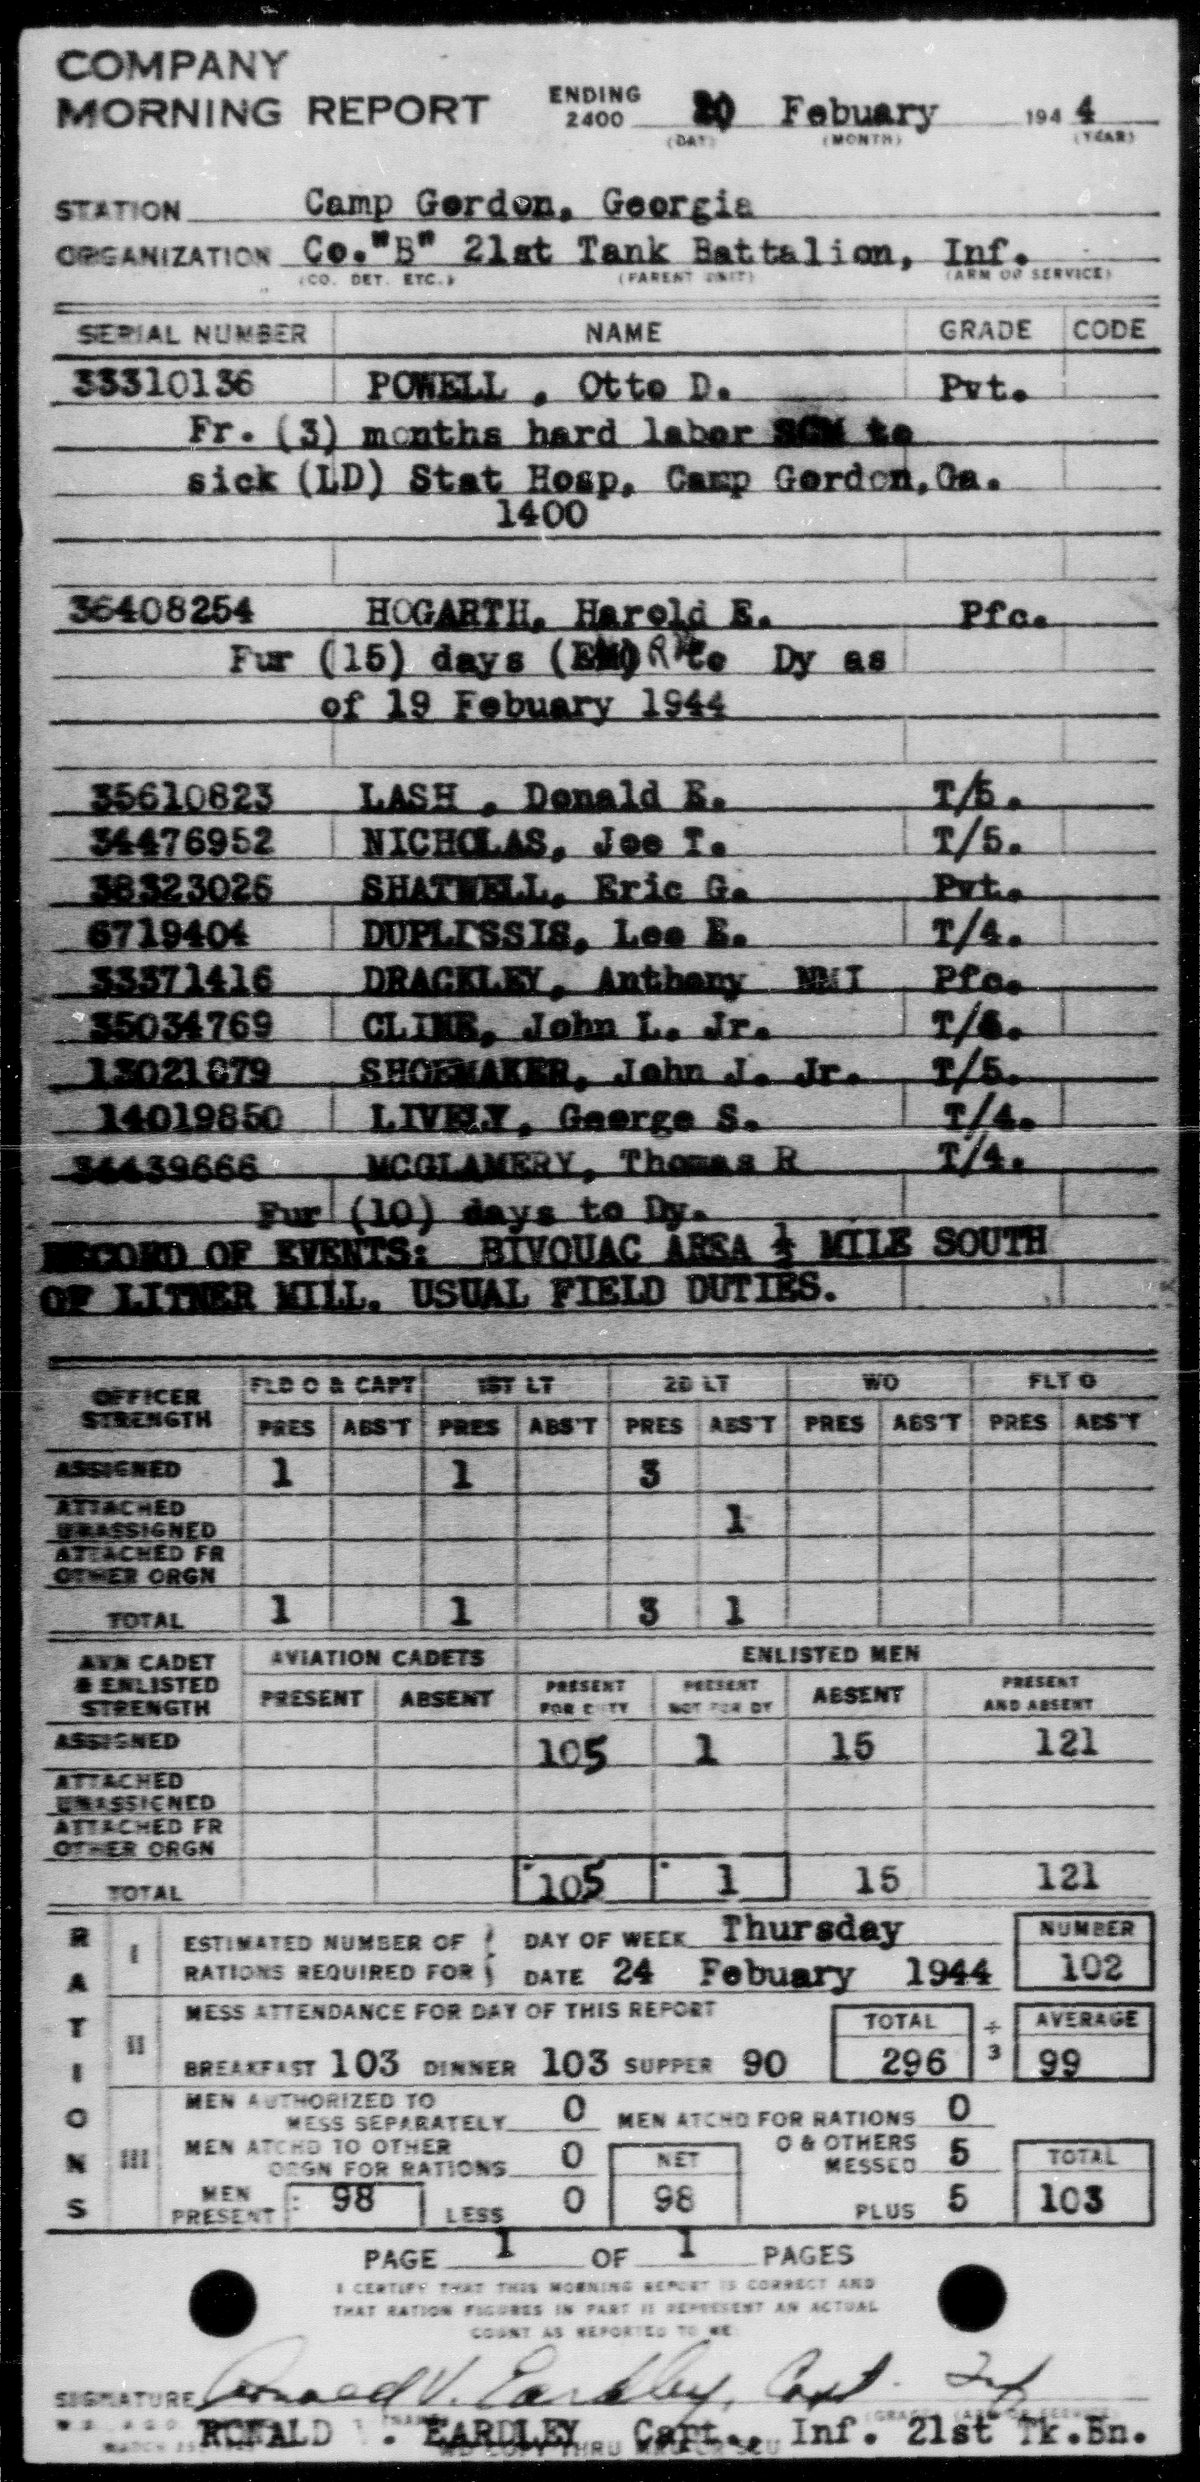 COMPANY
MORNING REPORT ENDING 2400 20 Febuary 1944
(DAY) (MONTH) (YEAR)
STATION Camp Gordon, Georgia
ORGANIZATION Co."B" 21st Tank Battalion, Inf.
(CO. DET. ETC.) (PARENT UNIT) (ARM OR SERVICE)
SERIAL NUMBER NAME GRADE CODE
33310136 POWELL , Otto D. Pvt.
Fr. (3) months hard labor SCM to
sick (LD) Stat Hosp, Camp Gordon, Ga.
1400
36408254 HOGARTH, Harold E. Pfc.
Fur (15) days to Dy as
of 19 Febuary 1944
35610823 LASH , Donald E. T/5.
34476952 NICHOLAS, Joe T. T/5.
38323026 SHATWELL, Eric G. Pvt.
6719404 DUPLESSIS, Lee E. T/4.
33371416 DRACKLEY, Anthony NMI Pfc.
35034769 CLINE, John L. Jr.
13021879 SHOEMAKER, John J. Jr. T/5.
14019850 LIVELY, George S. T/4.
34439666 MCGLAMERY, Thomas R T/4.
Fur (10) days to Dy.
RECORD OF EVENTS: BIVOUAC AREA ½ MILE SOUTH
OF LITNER MILL. USUAL FIELD DUTIES.
OFFICER STRENGTH FLD O & CAPT 1ST LT 2D LT WO FLT O
PRES ABS'T PRES ABS'T PRES ABS'T PRES ABS'T PRES ABS'T
ASSIGNED 1 1 3
ATTACHED UNASSIGNED 1
ATTACHED FR OTHER ORGN
TOTAL 1 1 3 1
AVN CADET & ENLISTED STRENGTH AVIATION CADETS ENLISTED MEN
PRESENT ABSENT PRESENT FOR DUTY PRESENT NOT FOR DY ABSENT PRESENT AND ABSENT
ASSIGNED 105 1 15 121
ATTACHED UNASSIGNED
ATTACHED FR OTHER ORGN
TOTAL 105 1 15 121
RATIONS
I ESTIMATED NUMBER OF RATIONS REQUIRED FOR DAY OF WEEK Thursday NUMBER
DATE 24 Febuary 1944 102
II MESS ATTENDANCE FOR DAY OF THIS REPORT TOTAL ÷ 3 AVERAGE
BREAKFAST 103 DINNER 103 SUPPER 90 296 99
III MEN AUTHORIZED TO MESS SEPARATELY 0 MEN ATCHD FOR RATIONS 0
MEN ATCHD TO OTHER ORGN FOR RATIONS 0 NET O & OTHERS MESSED 5 TOTAL
MEN PRESENT 98 LESS 0 98 PLUS 5 103
PAGE 1 OF 1 PAGES
I CERTIFY THAT THIS MORNING REPORT IS CORRECT AND
THAT RATION FIGURES IN PART II REPRESENT AN ACTUAL
COUNT AS REPORTED TO ME
SIGNATURE Ronald V. Eardley, Capt. Inf
RONALD V. EARDLEY Capt., Inf. 21st Tk.Bn.